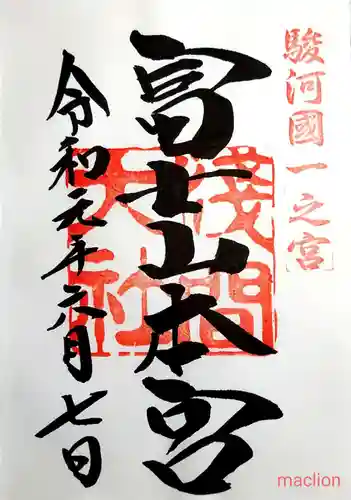 駿河國一之宮
富士山本宮
淺間大社
令和元年六月七日
maclion